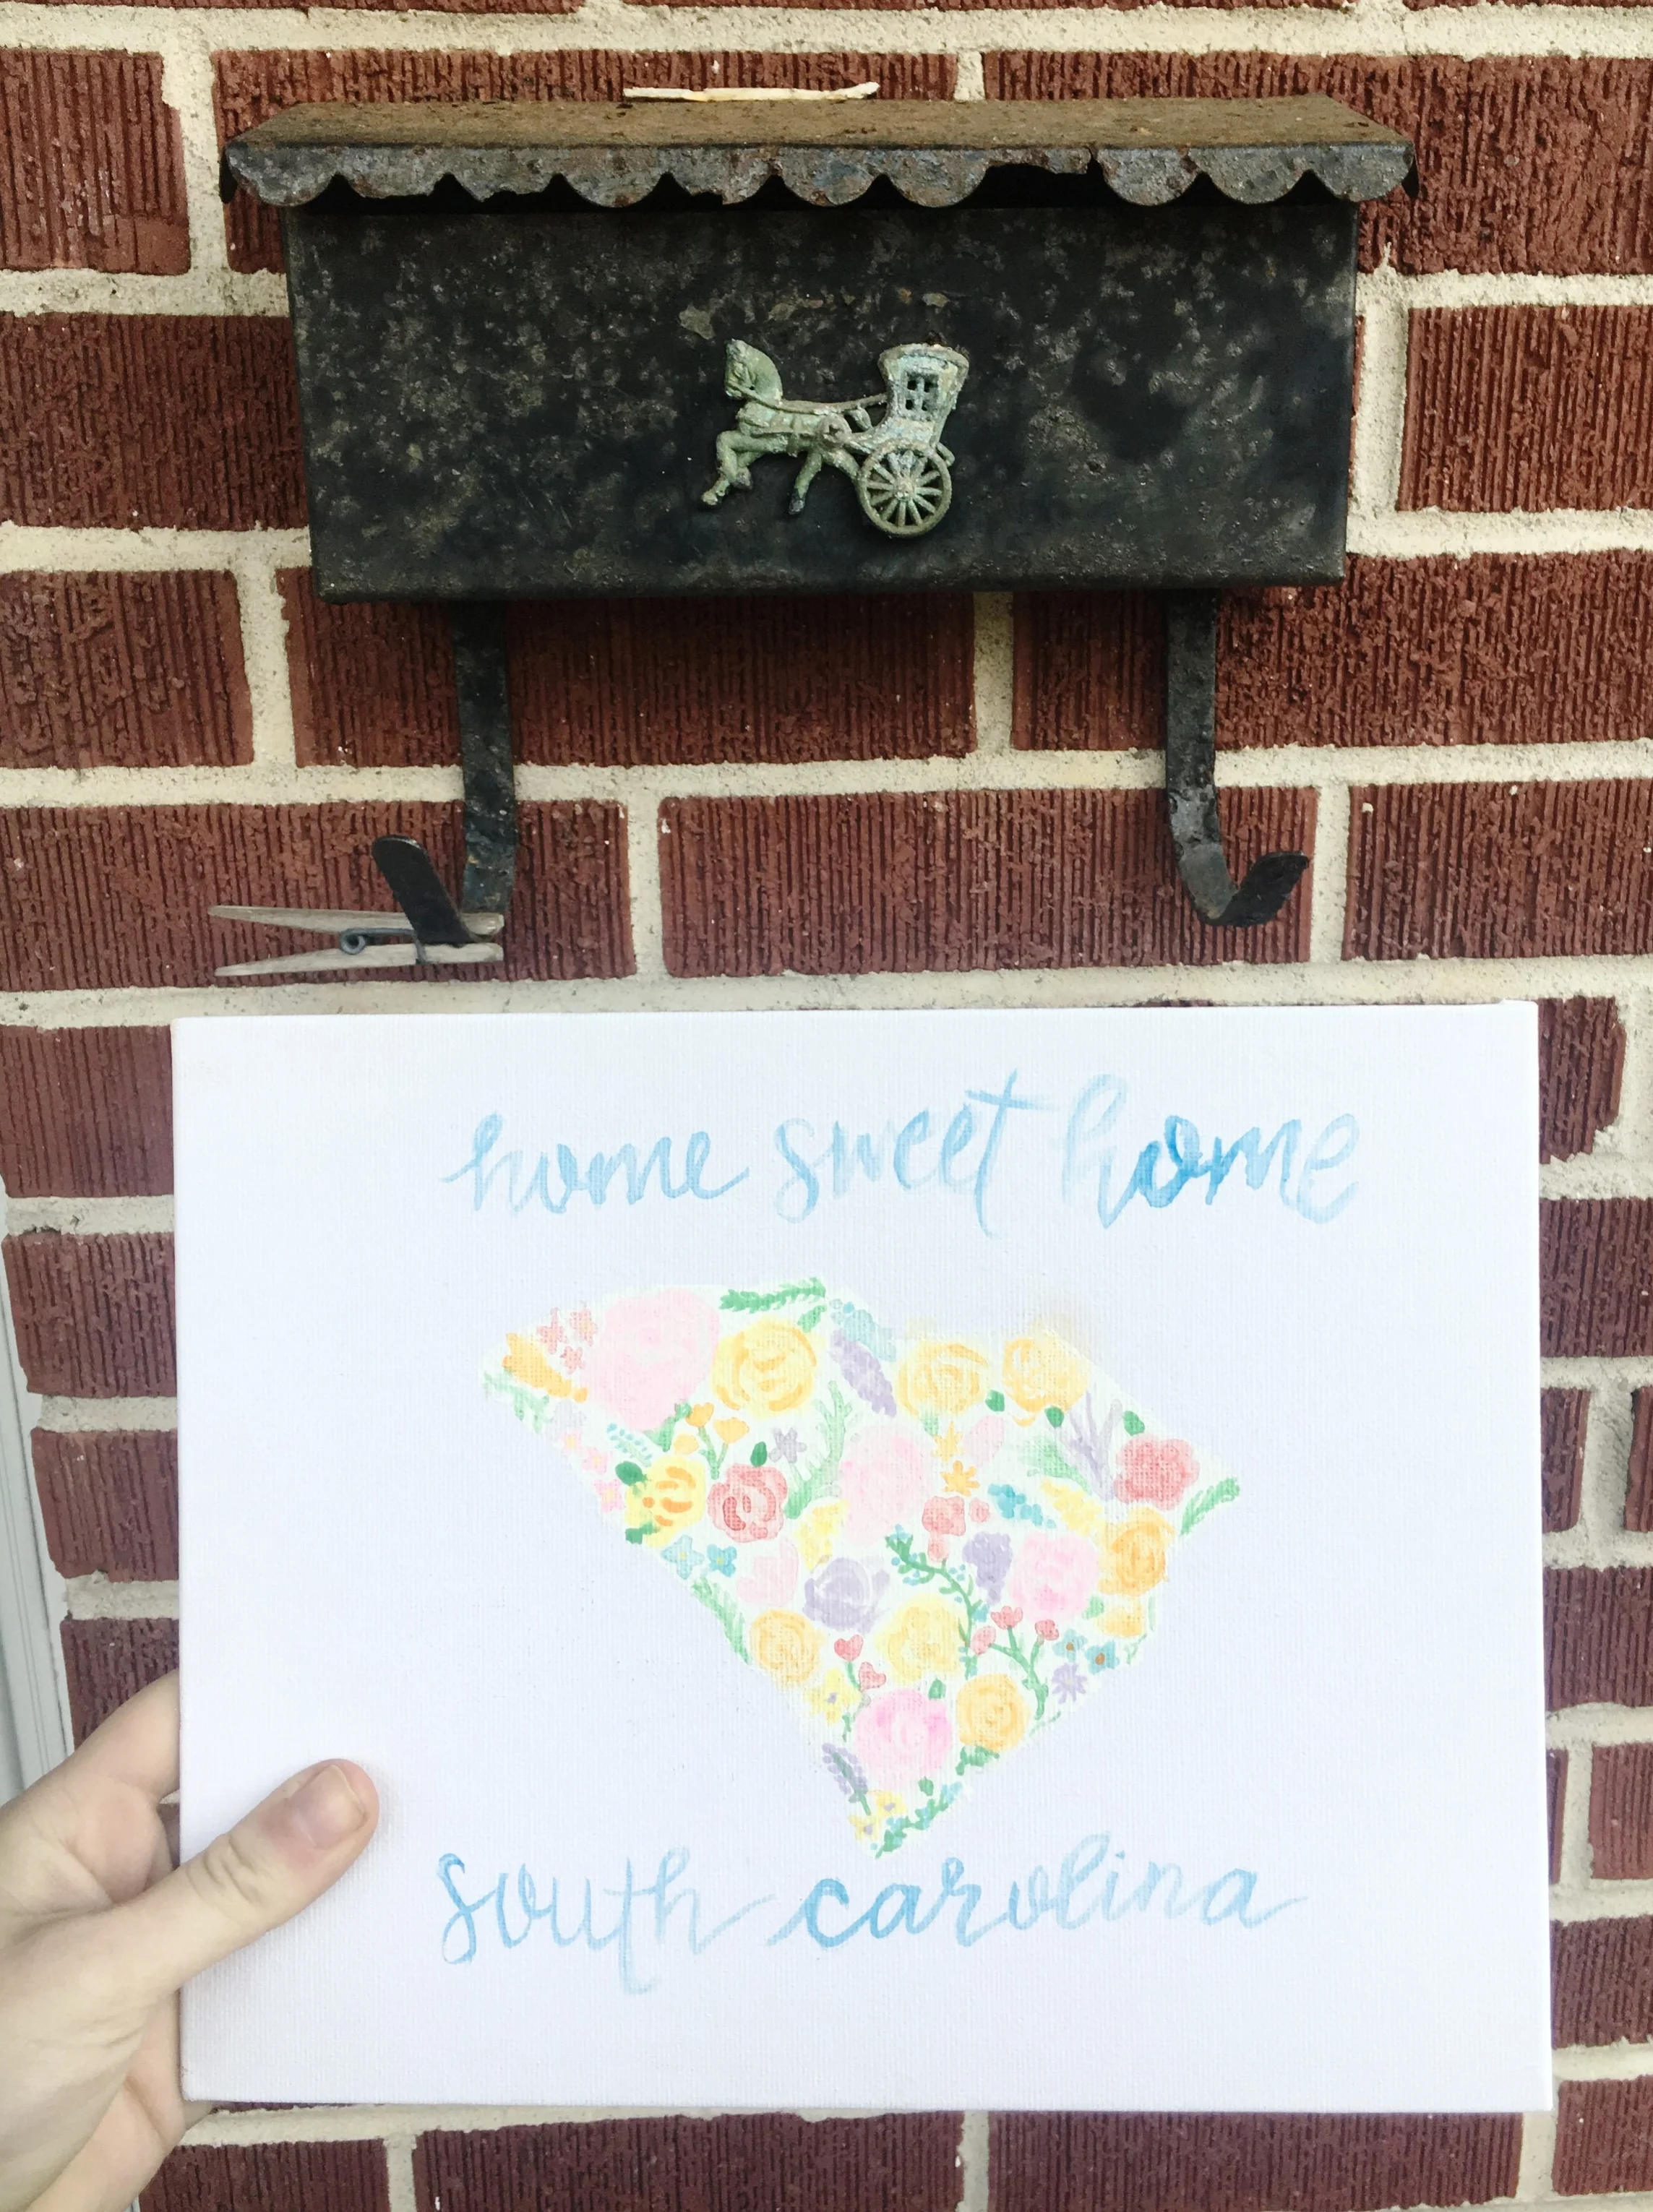 home sweet home
south carolina